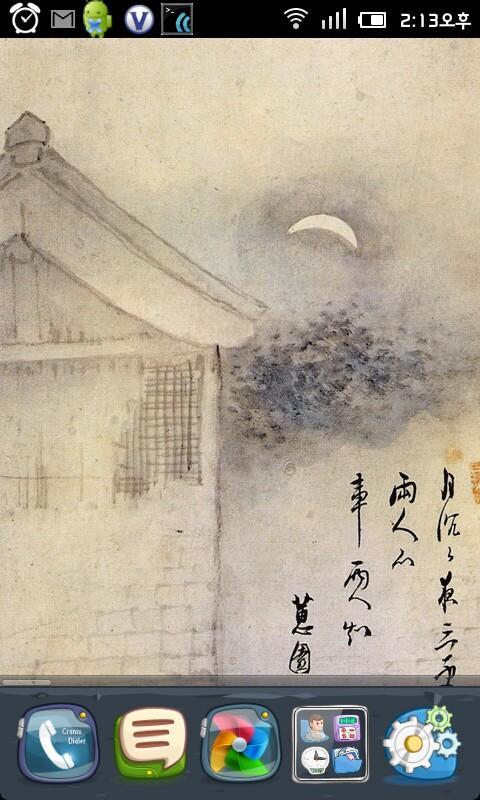 2:13오후
月沉〻夜三更
兩人心
事兩人知
蕙園
Dialer